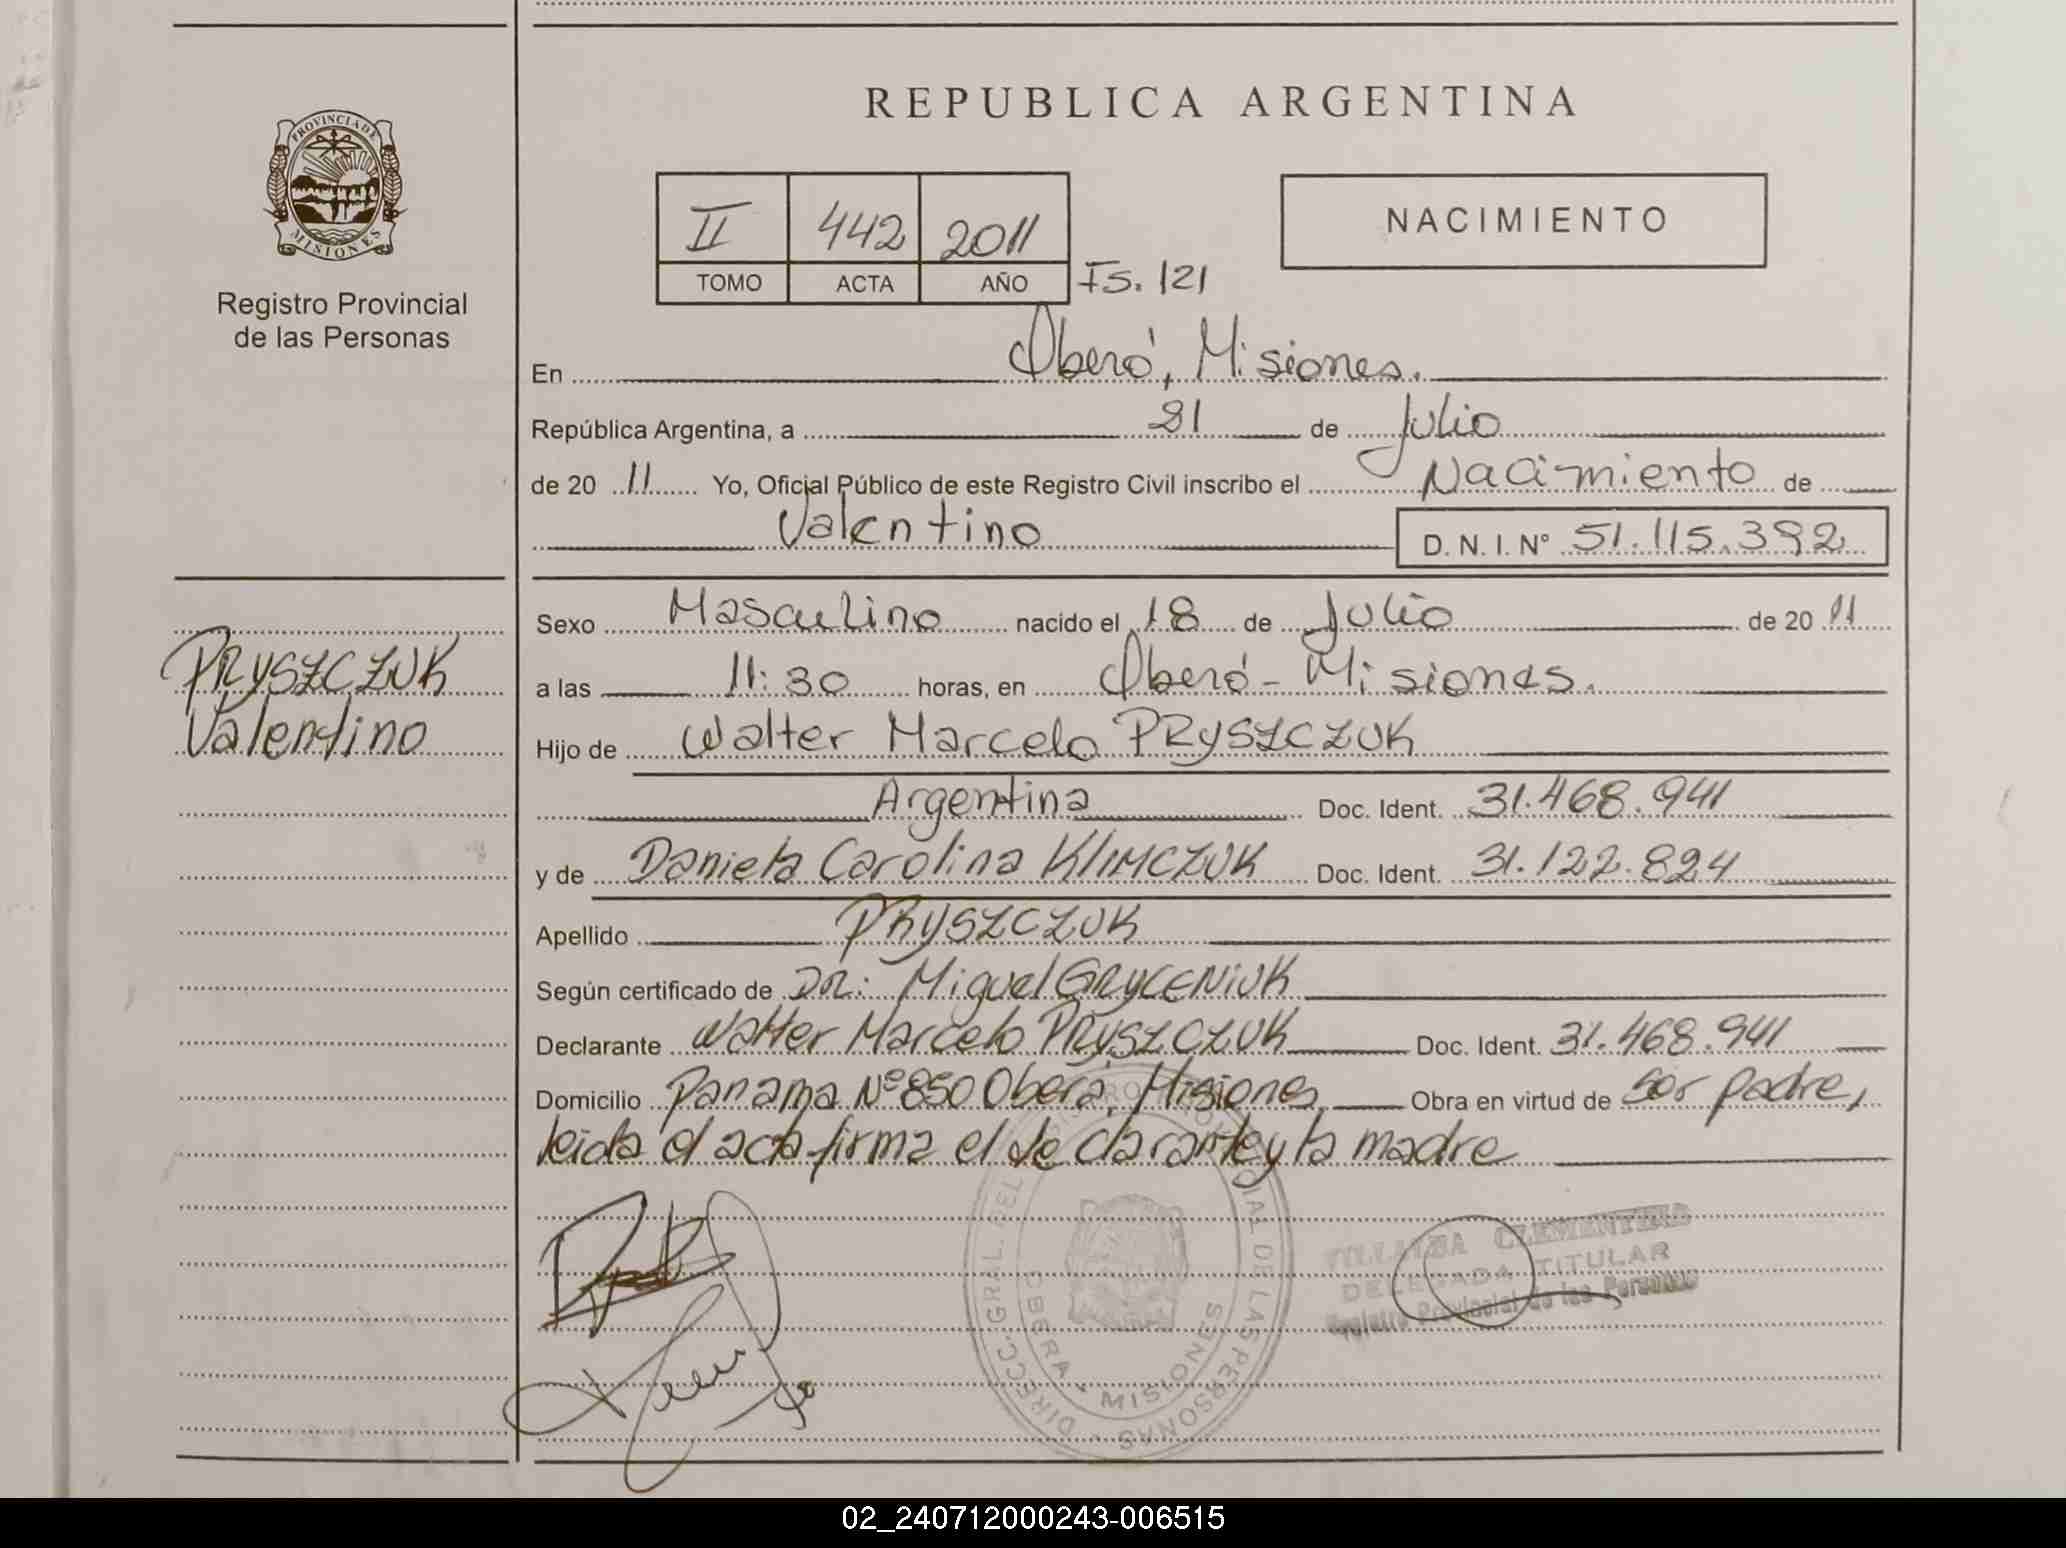 REPUBLICA ARGENTINA
PROVINCIA DE
MISIONES
Registro Provincial
de las Personas
II 442 2011
TOMO ACTA AÑO Fs. 121
NACIMIENTO
En Oberá, Misiones.
República Argentina, a 21 de Julio
de 20 11 Yo, Oficial Público de este Registro Civil inscribo el Nacimiento de
Valentino D. N. I. Nº 51.115.392
Sexo Masculino nacido el 18 de Julio de 20 11
a las 11:30 horas, en Oberá - Misiones.
PRYSZCZUK
Valentino
Hijo de Walter Marcelo PRYSZCZUK
Argentina Doc. Ident. 31.468.941
y de Daniela Carolina KLIMCZUK Doc. Ident. 31.122.824
Apellido PRYSZCZUK
Según certificado de DR: Miguel GRYCENIUK
Declarante Walter Marcelo PRYSZCZUK Doc. Ident. 31.468.941
Domicilio Panama Nº 850 Oberá, Misiones, Obra en virtud de ser padre,
leida el acta firma el declarante y la madre
DIRECC. GRAL. DEL REG. PROVINCIAL DE LAS PERSONAS
OBERA - MISIONES
VILLALBA CLEMENTINA
DELEGADA TITULAR
Registro Provincial de las Personas
02_240712000243-006515